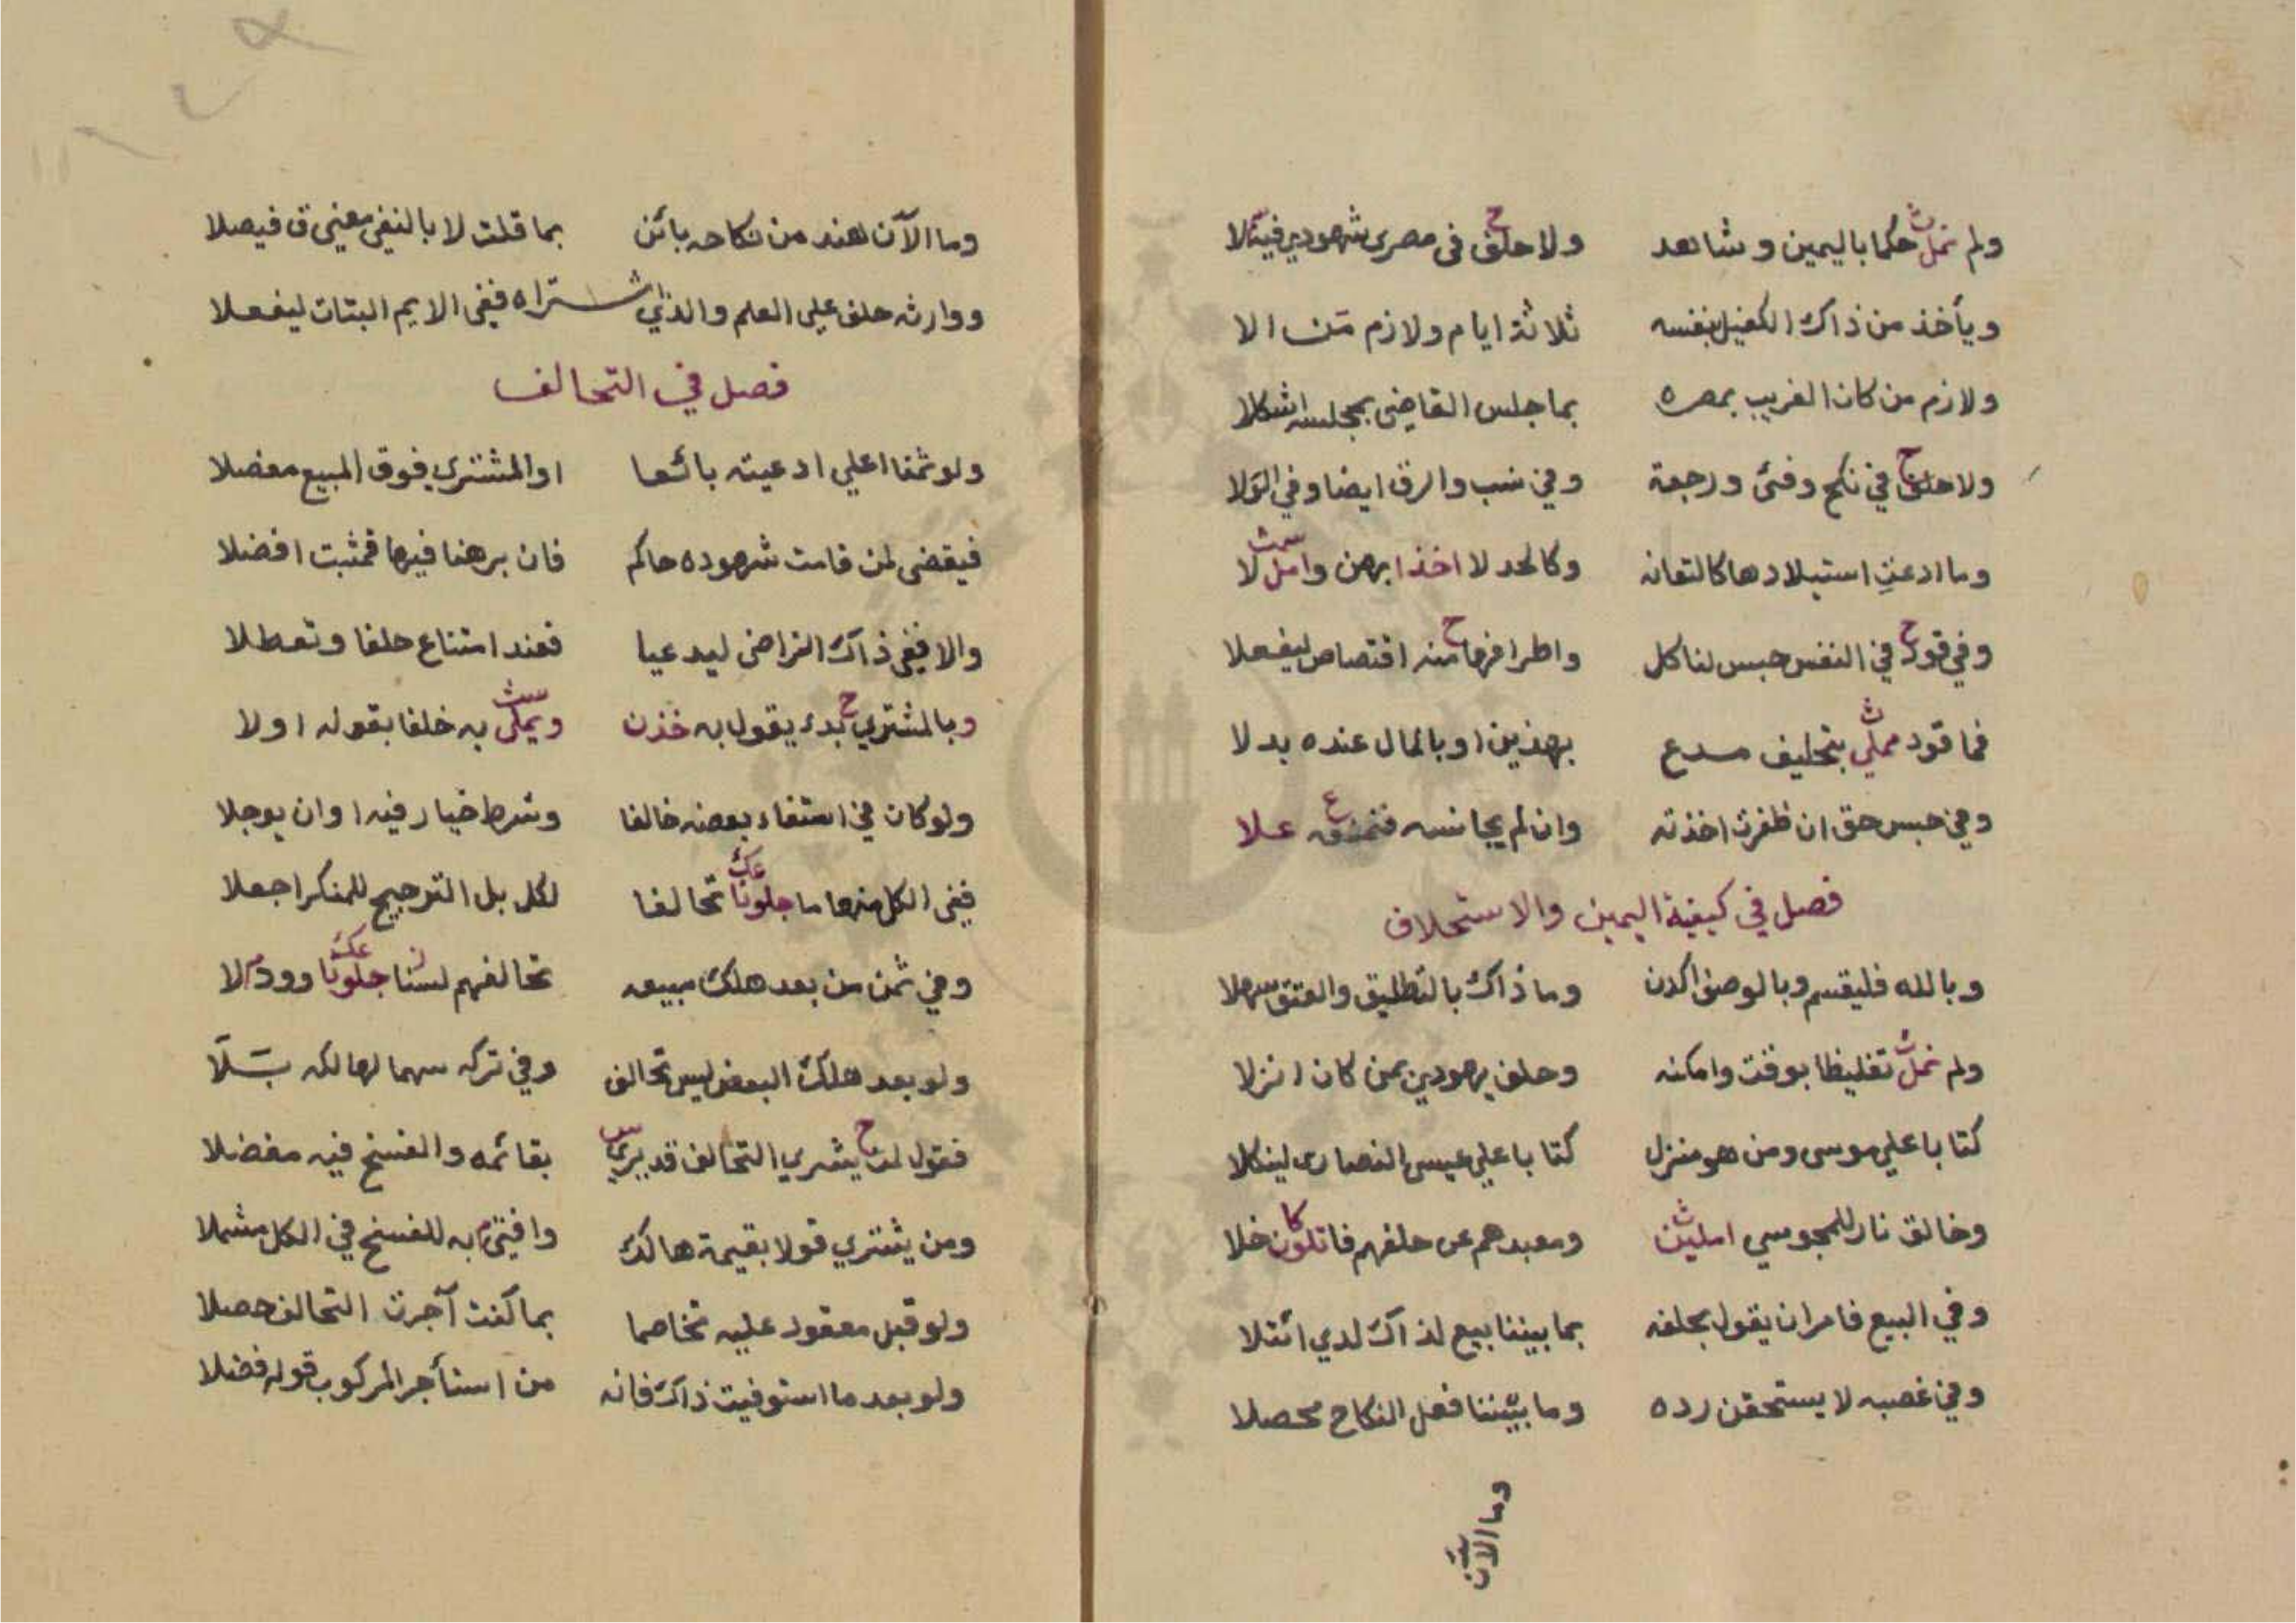 ولم نمل حكما باليمين وشاهد ولا حلف في مصري شهودي فيتلا
ويأخذ من ذاك الكفيل بنفسه ثلاثة ايام ولازم من الا
ولازم من كان الغريب بمصره بما جلس القاضي بمجلسه اشكلا
ولا حلف في نكح وفئ ورجعة وفي نسب والرق ايضا وفي الولا
وما ادعت استيلادها كالتعانه وكالحد لا اخذا برهن وامل لا
وفي قود في النفس حبس لناكل واطرافها منه اقتصاص ليفعلا
فما قود مملي بتحليف مدع بهذين او بالمال عنده بدلا
وفي حبس حق ان ظفرت اخذته وان لم يجانسه علا
فصل في كيفية اليمين والاستحلاف
وبالله فليقسم وبالوصف اكدن وما ذاك بالتطليق والعتق سهلا
ولم نمل تغليظا بوقت وامكنه وحلف يهودين بمن كان انزلا
كتابا علي موسى ومن هو منزل كتابا علي عيسى النصارى لينكلا
وخالق نار للمجوسي املين ومعبدهم عن حلفهم فاتلون خلا
وفي البيع فامر ان يقول بحلفه بما بيننا بيع لذاك لدي ائتلا
وفي غصبه لا يستحقن رده وما بيننا فعل النكاح محصلا
وما الآن
وما الآن هند من نكاحه بائن بما قلت لا بالنفي معنى ق فيصلا
ووارثه حلف علي العلم والذي اشتراه ففي الايم البتات ليفعلا
فصل في التحالف
ولو ثمنا اعلي ادعيته بائعا او المشتري فوق المبيع مفصلا
فيقضى لمن قامت شهوده حاكم فان برهنا فيها فمثبت افضلا
والا ففي ذاك التراضي ليدعيا فعند امتناع حلفا وتعطلا
وبالمشتري بدء يقول به خذن ويملى به خلفا بقوله اولا
ولو كان في استفاء بعضه خالفا وشرط خيار فيه او ان يوجلا
ففي الكل منها ما جلونا تحالفا لكل بل الترجيح للمنكر اجعلا
وفي ثمن من بعد هلك مبيعه تحالفهم لسنا جلونا وودلا
ولو بعد هلك البعض ليس تحالف وفي تركه سهما لهالكه بتلا
فقول لمن يشري التحالف قد يري بقائمه والفسخ فيه مفضلا
ومن يشتري قولا بقيمة هالك وافتي م به للفسخ في الكل مشملا
ولو قبل معقود عليه تخاصما بما كنت آجرت التحالف حصلا
ولو بعد ما استوفيت ذاك فانه من استأجر المركوب قوله فضلا